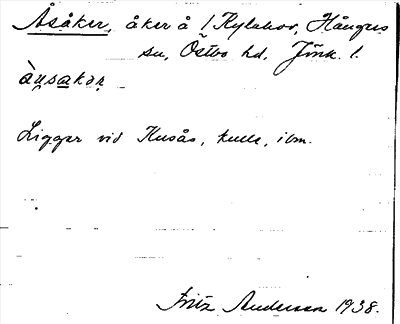 Åsåker, åker å / Kylahov, Hångers
sn, Östbo hd, Jönk. l.
Ligger vid Kusås, kulle, ibm.
Fritz Anderson 1938.